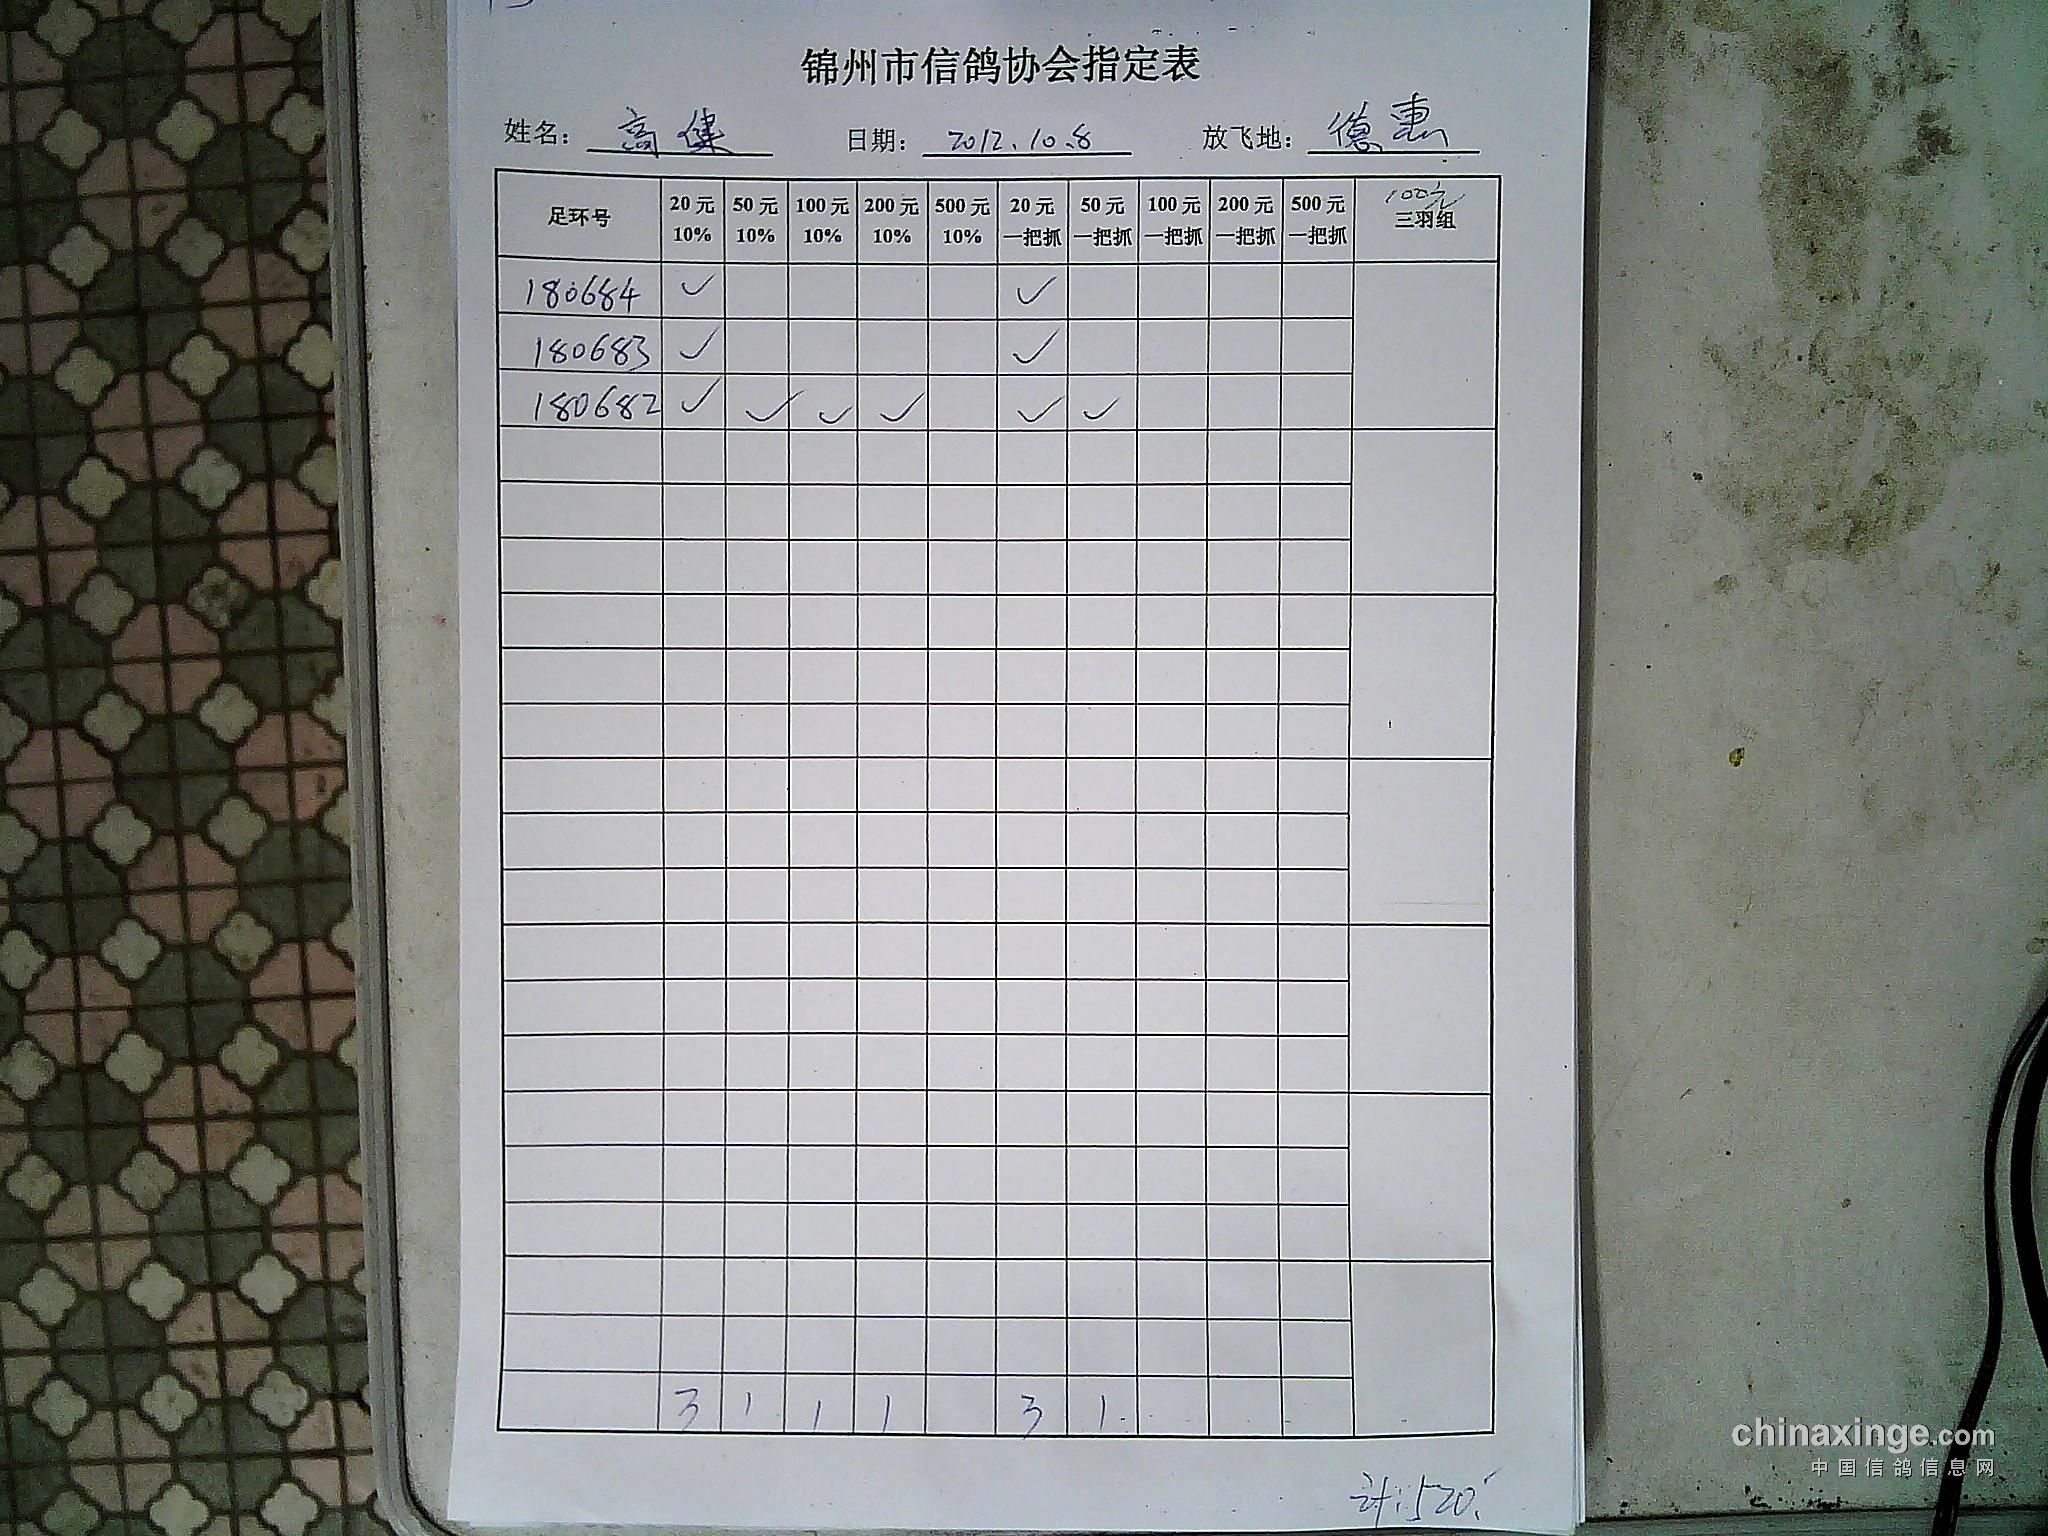 锦州市信鸽协会指定表
姓名： 高健 日期： 2012.10.8 放飞地： 德惠
足环号 20元 10% 50元 10% 100元 10% 200元 10% 500元 10% 20元 一把抓 50元 一把抓 100元 一把抓 200元 一把抓 500元 一把抓 100元 三羽组
180684 ✓ ✓
180683 ✓ ✓
180682 ✓ ✓ ✓ ✓ ✓ ✓
3 1 1 1 3 1
计:520.
chinaxinge.com
中国信鸽信息网